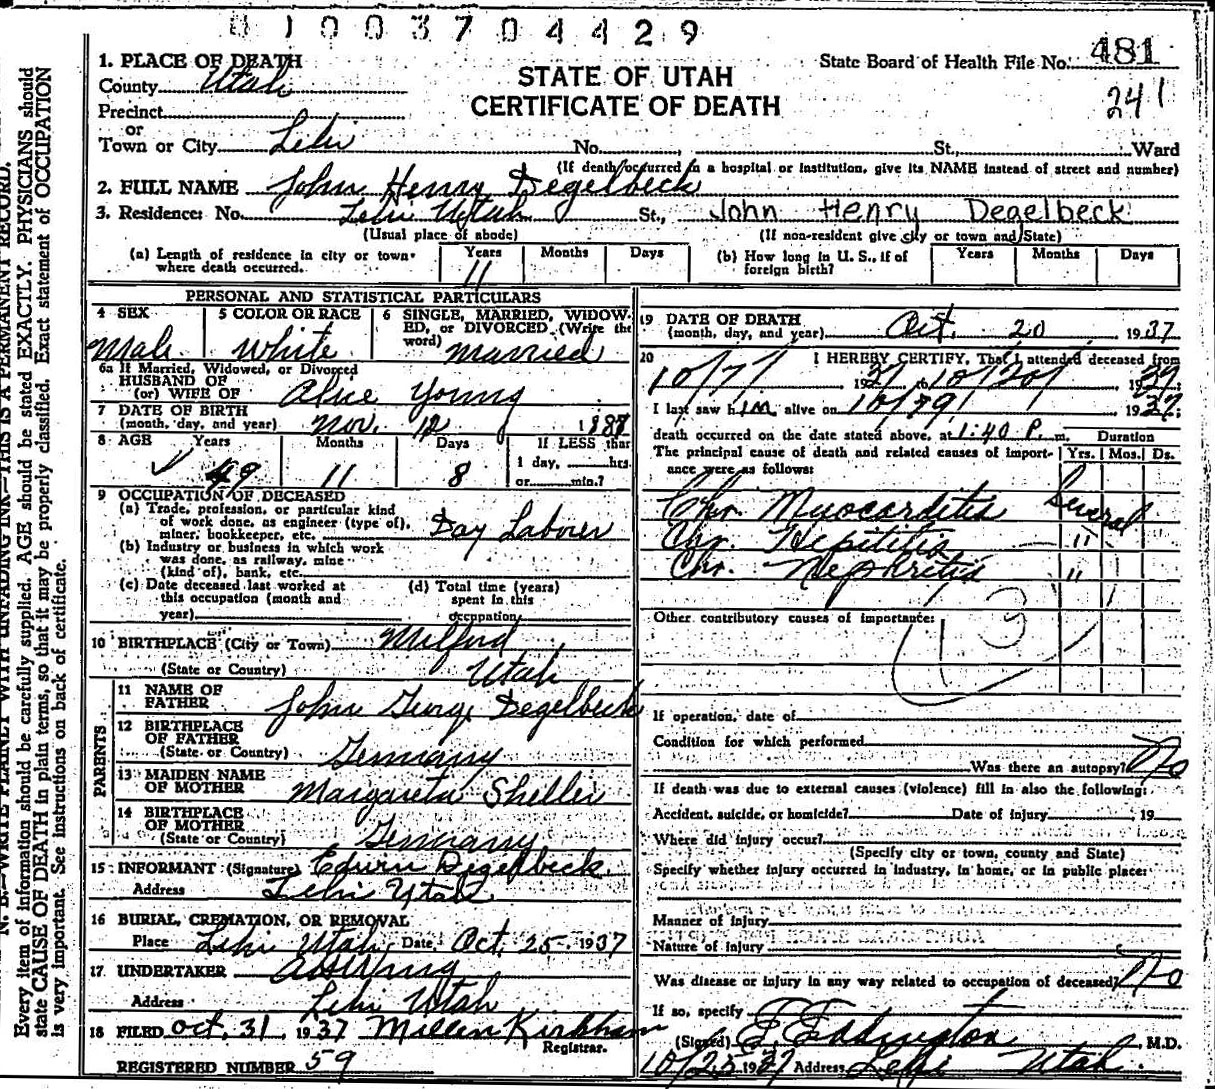 01003704429
1. PLACE OF DEATH
County Utah
Precinct
or
Town or City Lehi No. St., Ward
STATE OF UTAH
CERTIFICATE OF DEATH
State Board of Health File No. 481
241
(If death occurred in a hospital or institution, give its NAME instead of street and number)
2. FULL NAME John Henry Degelbeck
3. Residence: No. Lehi Utah St., John Henry Degelbeck
(Usual place of abode) (If non-resident give city or town and State)
(a) Length of residence in city or town where death occurred. Years 11 Months Days
(b) How long in U. S., if of foreign birth? Years Months Days
PERSONAL AND STATISTICAL PARTICULARS
4 SEX Male
5 COLOR OR RACE White
6 SINGLE, MARRIED, WIDOWED, or DIVORCED (Write the word) Married
6a If Married, Widowed, or Divorced
HUSBAND OF
(or) WIFE OF Alice Young
7 DATE OF BIRTH
(month, day, and year) Nov. 12 1887
8 AGE Years 49 Months 11 Days 8 If LESS than
1 day, hrs.
or min.?
9 OCCUPATION OF DECEASED
(a) Trade, profession, or particular kind
of work done, as engineer (type of),
miner, bookkeeper, etc. Day Laborer
(b) Industry or business in which work
was done, as railway, mine
(kind of), bank, etc.
(c) Date deceased last worked at
this occupation (month and
year)
(d) Total time (years)
spent in this
occupation
10 BIRTHPLACE (City or Town) Milford
(State or Country) Utah
PARENTS
11 NAME OF
FATHER John George Degelbeck
12 BIRTHPLACE
OF FATHER
(State or Country) Germany
13 MAIDEN NAME
OF MOTHER Margareta Sheller
14 BIRTHPLACE
OF MOTHER
(State or Country) Germany
15 INFORMANT (Signature) Edwin Degelbeck
Address Lehi Utah
16 BURIAL, CREMATION, OR REMOVAL
Place Lehi Utah Date Oct. 25 1937
17 UNDERTAKER
Address Lehi Utah
18 FILED Oct. 31, 1937 Kirkham
Registrar.
REGISTERED NUMBER 59
19 DATE OF DEATH
(month, day, and year) Oct. 20 1937
20 I HEREBY CERTIFY, That I attended deceased from
10/7/ 1937 to 10/20/ 1937;
I last saw him alive on 10/19/ 1937;
death occurred on the date stated above, at 1:40 P. m.
The principal cause of death and related causes of importance were as follows:
Duration
Yrs. Mos. Ds.
Chr. Myocarditis Several
Chr. Hepititis "
Chr. Nephritis "
Other contributory causes of importance:
If operation, date of
Condition for which performed
Was there an autopsy? No
If death was due to external causes (violence) fill in also the following:
Accident, suicide, or homicide? Date of injury 19
Where did injury occur?
(Specify city or town, county and State)
Specify whether injury occurred in industry, in home, or in public place:
Manner of injury
Nature of injury
Was disease or injury in any way related to occupation of deceased? No
If so, specify
(Signed) E. Eddington, M.D.
10/25 1937 Address Lehi Utah
N. B.—WRITE PLAINLY WITH UNFADING INK—THIS IS A PERMANENT RECORD.
Every item of information should be carefully supplied. AGE should be stated EXACTLY. PHYSICIANS should
state CAUSE OF DEATH in plain terms, so that it may be properly classified. Exact statement of OCCUPATION
is very important. See instructions on back of certificate.